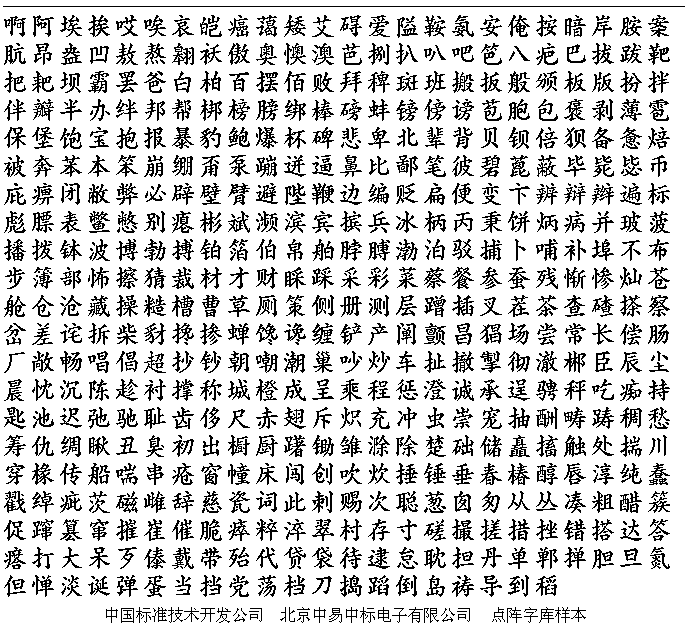 啊阿埃挨哎唉哀皑癌蔼矮艾碍爱隘鞍氨安俺按暗岸胺案
肮昂盎凹敖熬翱袄傲奥懊澳芭捌扒叭吧笆八疤巴拔跋靶
把耙坝霸罢爸白柏百摆佰败拜稗斑班搬扳般颁板版扮拌
伴瓣半办绊邦帮梆榜膀绑棒磅蚌镑傍谤苞胞包褒剥薄雹
保堡饱宝抱报暴豹鲍爆杯碑悲卑北辈背贝钡倍狈备惫焙
被奔苯本笨崩绷甭泵蹦迸逼鼻比鄙笔彼碧蓖蔽毕毙毖币
庇痹闭敝弊必辟壁臂避陛鞭边编贬扁便变卞辨辩辫遍标
彪膘表鳖憋别瘪彬斌濒滨宾摈兵冰柄丙秉饼炳病并玻菠
播拨钵波博勃搏铂箔伯帛舶脖膊渤泊驳捕卜哺补埠不布
步簿部怖擦猜裁材才财睬踩采彩菜蔡餐参蚕残惭惨灿苍
舱仓沧藏操糙槽曹草厕策侧册测层蹭插叉茬茶查碴搽察
岔差诧拆柴豺搀掺蝉馋谗缠铲产阐颤昌猖场尝常长偿肠
厂敞畅唱倡超抄钞朝嘲潮巢吵炒车扯撤掣彻澈郴臣辰尘
晨忱沉陈趁衬撑称城橙成呈乘程惩澄诚承逞骋秤吃痴持
匙池迟弛驰耻齿侈尺赤翅斥炽充冲虫崇宠抽酬畴踌稠愁
筹仇绸瞅丑臭初出橱厨躇锄雏滁除楚础储矗搐触处揣川
穿椽传船喘串疮窗幢床闯创吹炊捶锤垂春椿醇唇淳纯蠢
戳绰疵茨磁雌辞慈瓷词此刺赐次聪葱囱匆从丛凑粗醋簇
促蹿篡窜摧崔催脆瘁粹淬翠村存寸磋撮搓措挫错搭达答
瘩打大呆歹傣戴带殆代贷袋待逮怠耽担丹单郸掸胆旦氮
但惮淡诞弹蛋当挡党荡档刀捣蹈倒岛祷导到稻
中国标准技术开发公司　北京中易中标电子有限公司　点阵字库样本